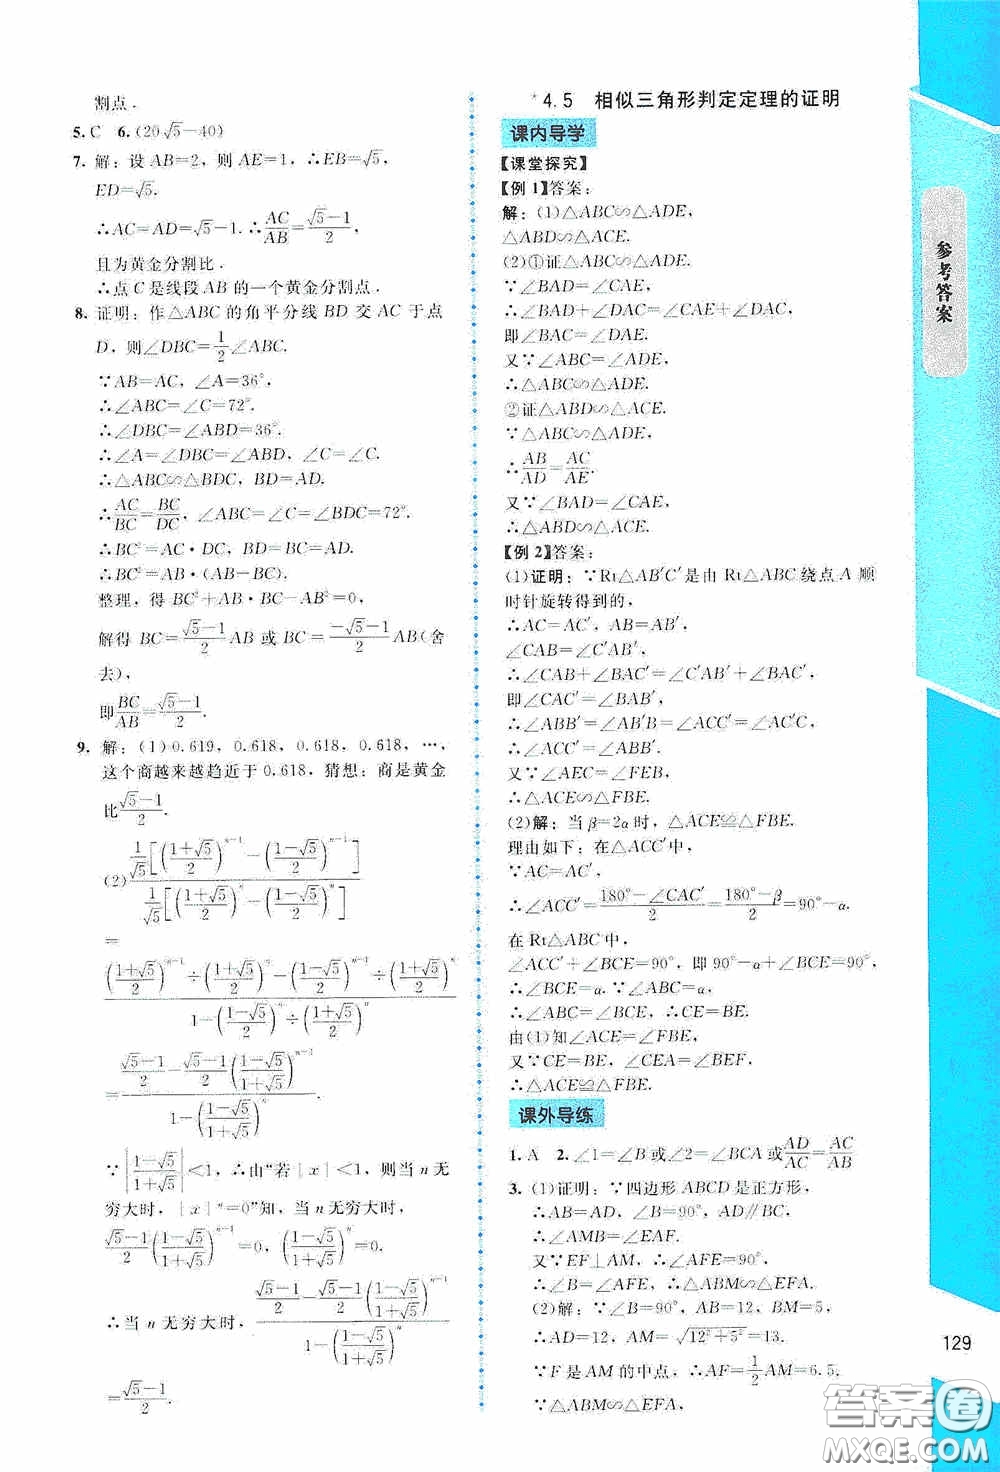 割点.
5. C  6. (20√5-40)
7. 解:设 AB=2,则 AE=1,∴EB=√5,
ED=√5.
∴AC=AD=√5-1.∴AC/AB=(√5-1)/2,
且为黄金分割比.
∴点 C 是线段 AB 的一个黄金分割点.
8. 证明:作△ABC 的角平分线 BD 交 AC 于点
D,则∠DBC=1/2∠ABC.
∵AB=AC,∠A=36°,
∴∠ABC=∠C=72°.
∴∠DBC=∠ABD=36°.
∴∠A=∠DBC=∠ABD,∠C=∠C.
∴△ABC∽△BDC,BD=AD.
∴AC/BC=BC/DC,∠ABC=∠C=∠BDC=72°.
∴BC²=AC·DC,BD=BC=AD.
∴BC²=AB·(AB-BC).
整理,得 BC²+AB·BC-AB²=0,
解得 BC=(√5-1)/2 AB 或 BC=(-√5-1)/2 AB(舍
去),
即BC/AB=(√5-1)/2.
9. 解:(1)0.619,0.618,0.618,0.618,…,
这个商越来越趋近于 0.618,猜想:商是黄金
比(√5-1)/2.
(2) (1/√5[((1+√5)/2)^(n-1)-((1-√5)/2)^(n-1)])/(1/√5[((1+√5)/2)^n-((1-√5)/2)^n])
=
(((1+√5)/2)^(n-1)÷((1+√5)/2)^n-((1-√5)/2)^(n-1)÷((1+√5)/2)^n)/(1-((1-√5)/2)^n÷((1+√5)/2)^n)
=((√5-1)/2-(√5-1)/2((1-√5)/(1+√5))^(n-1))/(1-((1-√5)/(1+√5))^n)
∵|(1-√5)/(1+√5)|<1,∴由“若|x|<1,则当 n 无
穷大时,|x|^n=0”知,当 n 无穷大时,
(√5-1)/2((1-√5)/(1+√5))^(n-1)=0,((1-√5)/(1+√5))^n=0,
∴当 n 无穷大时,((√5-1)/2-(√5-1)/2((1-√5)/(1+√5))^(n-1))/(1-((1-√5)/(1+√5))^n)
=(√5-1)/2.
*4.5 相似三角形判定定理的证明
课内导学
【课堂探究】
【例 1】答案:
解:(1)△ABC∽△ADE,
△ABD∽△ACE.
(2)①证△ABC∽△ADE.
∵∠BAD=∠CAE,
∴∠BAD+∠DAC=∠CAE+∠DAC,
即∠BAC=∠DAE.
又∵∠ABC=∠ADE,
∴△ABC∽△ADE.
②证△ABD∽△ACE.
∵△ABC∽△ADE,
∴AB/AD=AC/AE.
又∵∠BAD=∠CAE,
∴△ABD∽△ACE.
【例 2】答案:
(1)证明:∵Rt△AB′C′是由 Rt△ABC 绕点 A 顺
时针旋转得到的,
∴AC=AC′,AB=AB′,
∠CAB=∠C′AB′.
∴∠CAB+∠BAC′=∠C′AB′+∠BAC′,
即∠CAC′=∠BAB′.
∴∠ABB′=∠AB′B=∠ACC′=∠AC′C.
∴∠ACC′=∠ABB′.
又∵∠AEC=∠FEB,
∴△ACE∽△FBE.
(2)解:当 β=2α 时,△ACE≌△FBE.
理由如下:在△ACC′中,
∵AC=AC′,
∴∠ACC′=(180°-∠CAC′)/2=(180°-β)/2=90°-α.
在 Rt△ABC 中,
∠ACC′+∠BCE=90°,即 90°-α+∠BCE=90°,
∴∠BCE=α.∵∠ABC=α,
∴∠ABC=∠BCE,∴CE=BE.
由(1)知∠ACE=∠FBE,
又∵CE=BE,∠CEA=∠BEF,
∴△ACE≌△FBE.
课外导练
1. A  2. ∠1=∠B或∠2=∠BCA或AD/AC=AC/AB
3. (1)证明:∵四边形 ABCD 是正方形,
∴AB=AD,∠B=90°,AD∥BC.
∴∠AMB=∠EAF.
又∵EF⊥AM,∴∠AFE=90°,
∴∠B=∠AFE,∴△ABM∽△EFA.
(2)解:∵∠B=90°,AB=12,BM=5,
∴AD=12,AM=√(12²+5²)=13.
∵F 是 AM 的中点,∴AF=1/2 AM=6.5,
∵△ABM∽△EFA,
参考答案
129
答案圈
MXQE.COM